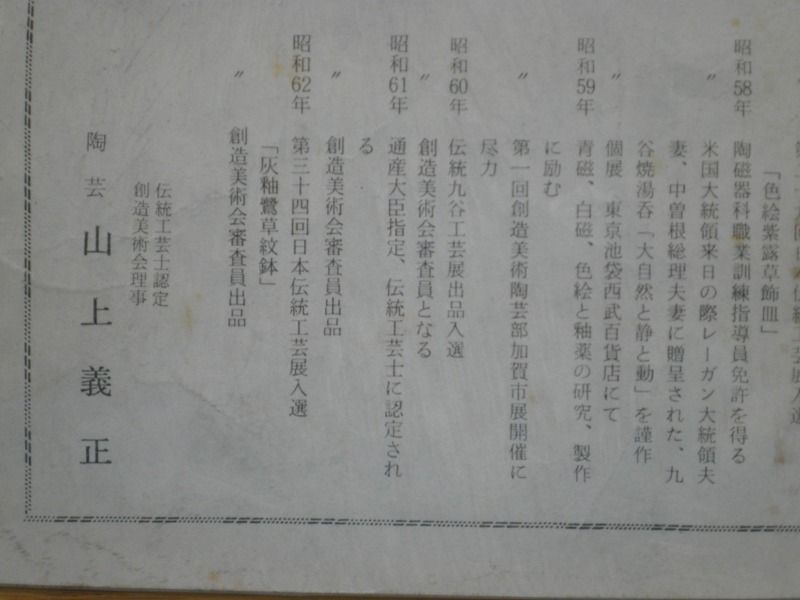 回日本伝統工芸展入選
「色絵紫露草飾皿」
昭和58年 陶磁器科職業訓練指導員免許を得る
〃 米国大統領来日の際レーガン大統領夫
妻、中曽根総理夫妻に贈呈された、九
谷焼湯呑「大自然と静と動」を謹作
〃 個展 東京池袋西武百貨店にて
昭和59年 青磁、白磁、色絵と釉薬の研究、製作
に励む
〃 第一回創造美術陶芸部加賀市展開催に
尽力
昭和60年 伝統九谷工芸展出品入選
〃 創造美術会審査員となる
昭和61年 通産大臣指定、伝統工芸士に認定され
る
〃 創造美術会審査員出品
昭和62年 第三十四回日本伝統工芸展入選
「灰釉鷺草紋鉢」
〃 創造美術会審査員出品
伝統工芸士認定
創造美術会理事
陶芸 山上義正